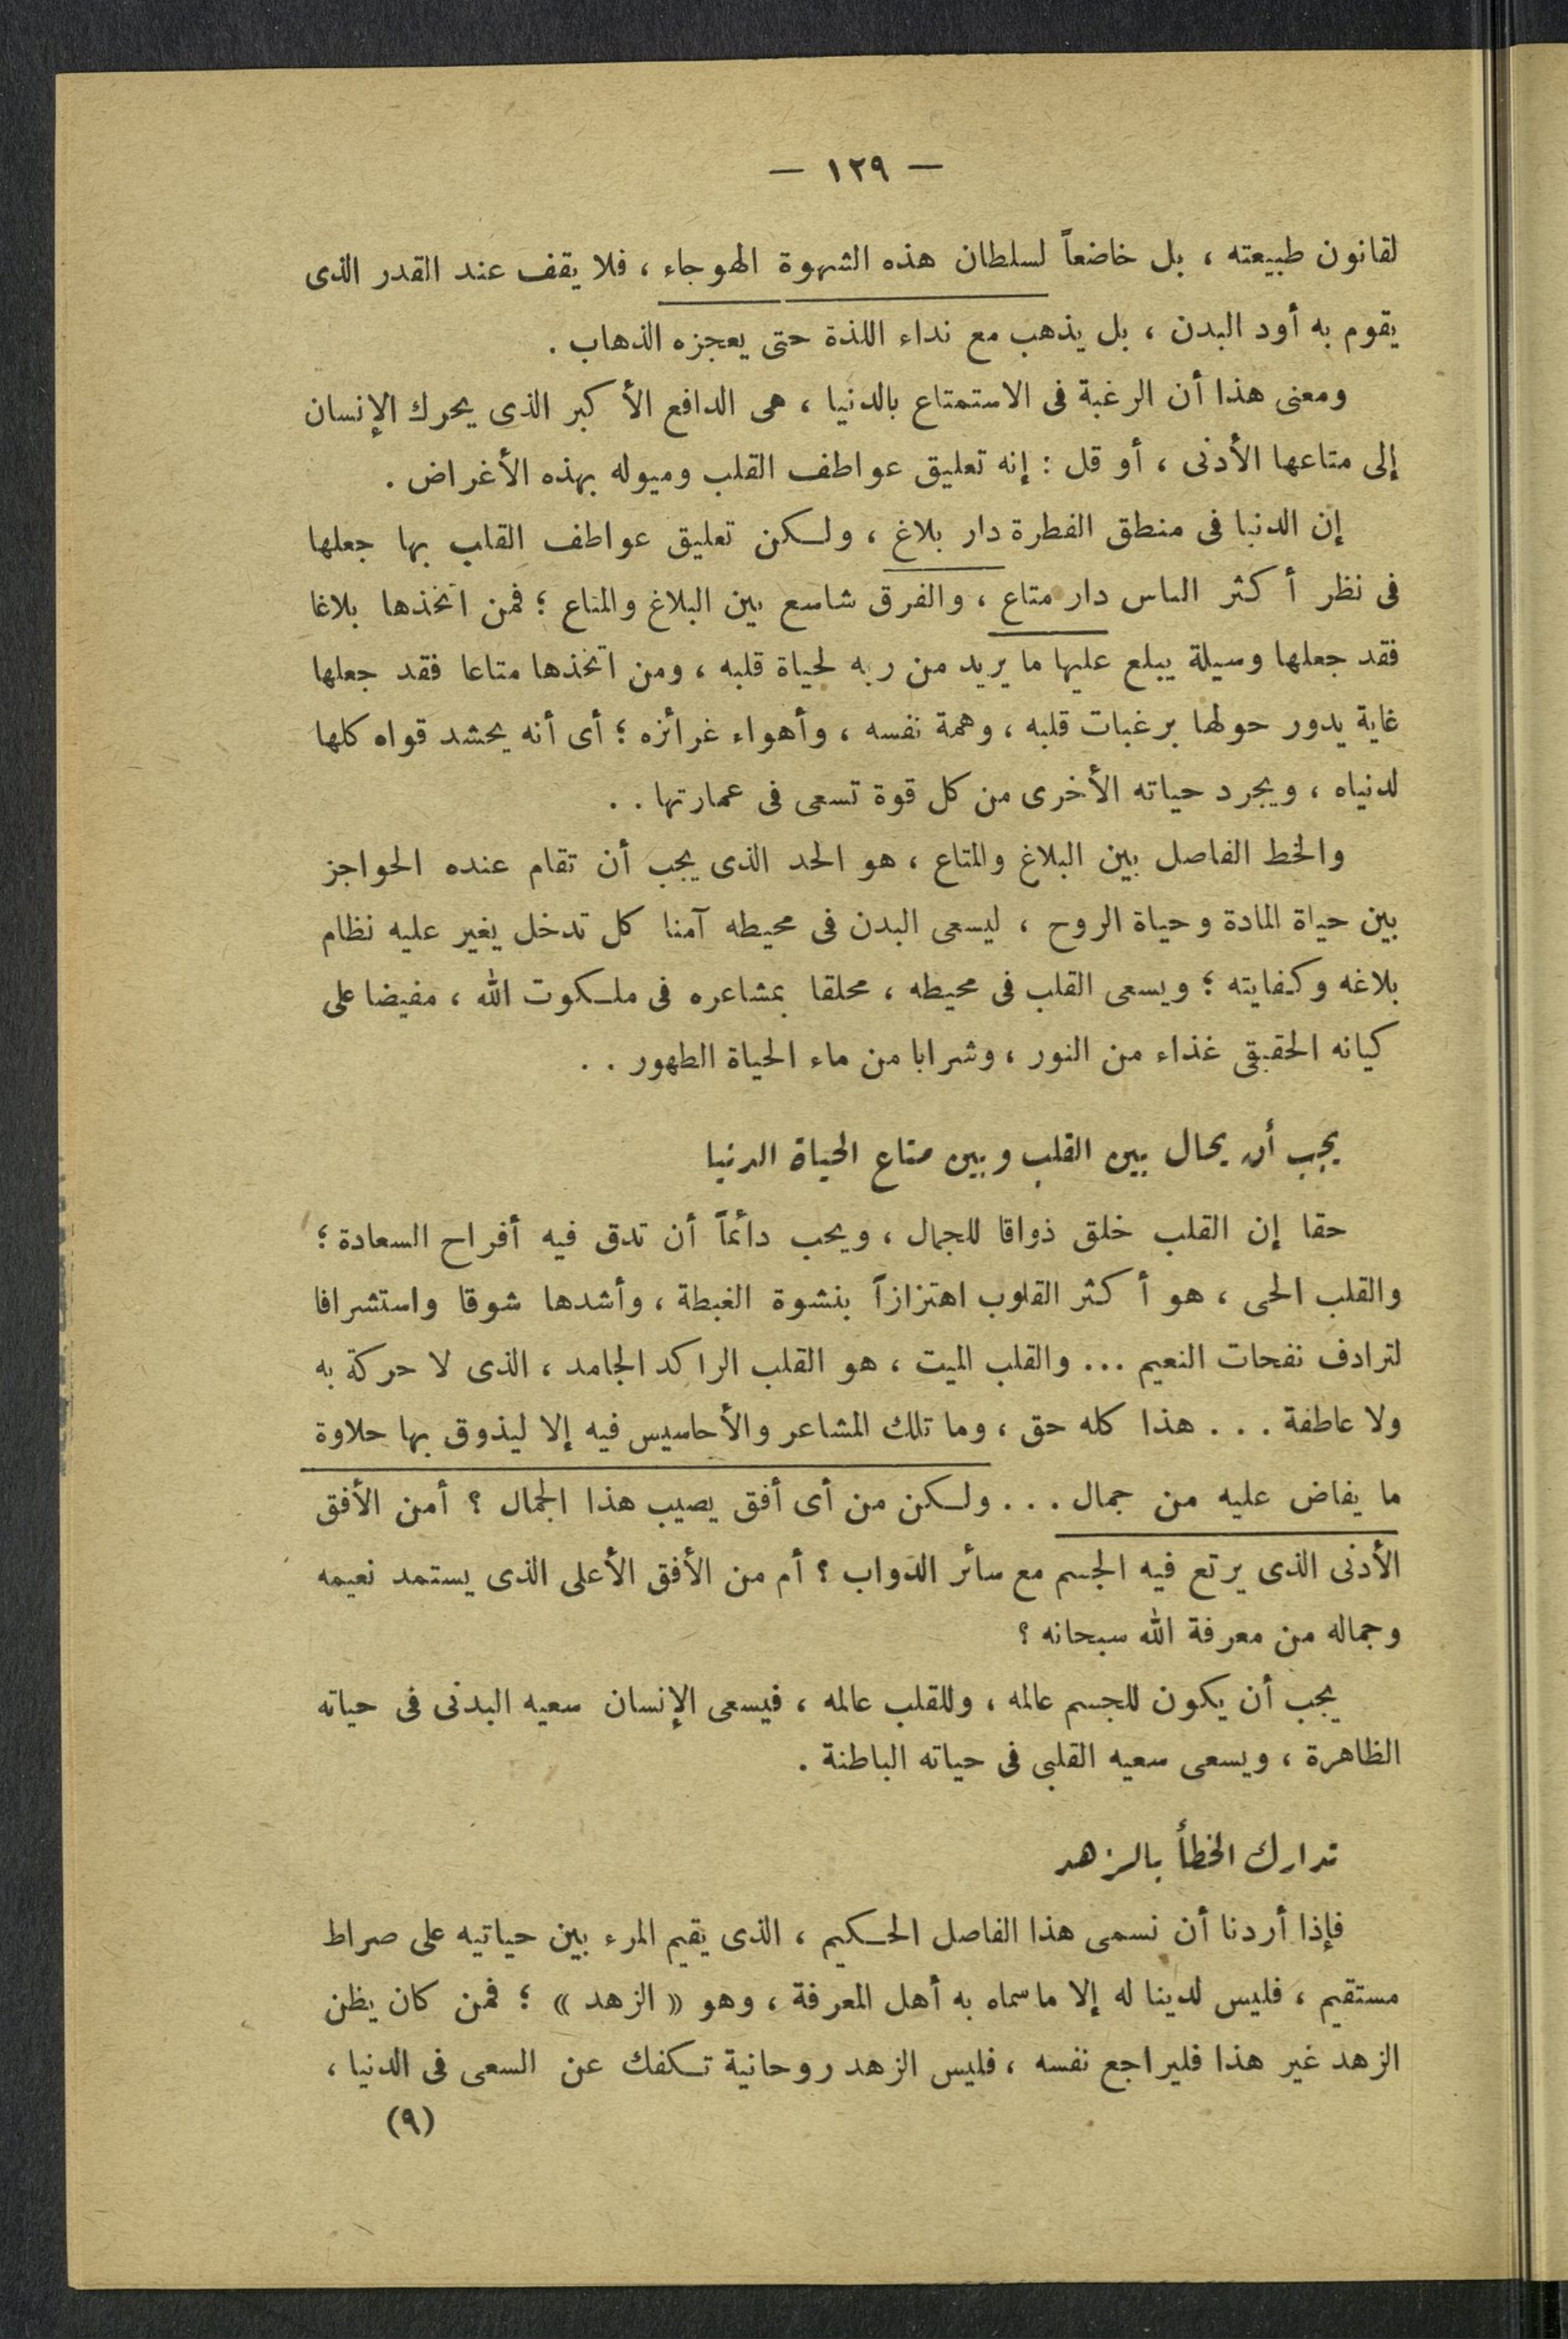 — ١٢٩ —
لقانون طبيعته ، بل خاضعاً لسلطان هذه الشهوة الهوجاء ، فلا يقف عند القدر الذى
يقوم به أود البدن ، بل يذهب مع نداء اللذة حتى يعجزه الذهاب .
ومعنى هذا أن الرغبة فى الاستمتاع بالدنيا ، هى الدافع الأكبر الذى يحرك الإنسان
إلى متاعها الأدنى ، أو قل : إنه تعليق عواطف القلب وميوله بهذه الأغراض .
إن الدنيا فى منطق الفطرة دار بلاغ ، ولكن تعليق عواطف القلب بها جعلها
فى نظر أكثر الناس دار متاع ، والفرق شاسع بين البلاغ والمتاع ؛ فمن اتخذها بلاغا
فقد جعلها وسيلة يبلغ عليها ما يريد من ربه لحياة قلبه ، ومن اتخذها متاعا فقد جعلها
غاية يدور حولها برغبات قلبه ، وهمة نفسه ، وأهواء غرائزه ؛ أى أنه يحشد قواه كلها
لدنياه ، ويجرد حياته الأخرى من كل قوة تسعى فى عمارتها . .
والخط الفاصل بين البلاغ والمتاع ، هو الحد الذى يجب أن تقام عنده الحواجز
بين حياة المادة وحياة الروح ، ليسعى البدن فى محيطه آمنا كل تدخل يغير عليه نظام
بلاغه وكفايته ؛ ويسعى القلب فى محيطه ، محلقا بمشاعره فى ملكوت الله ، مفيضا على
كيانه الحقيقى غذاء من النور ، وشرابا من ماء الحياة الطهور . .
يجب أن يحال بين القلب وبين متاع الحياة الدنيا
حقا إن القلب خلق ذواقا للجمال ، ويحب دائماً أن تدق فيه أفراح السعادة ؛
والقلب الحى ، هو أكثر القلوب اهتزازاً بنشوة الغبطة ، وأشدها شوقا واستشرافا
لترادف نفحات النعيم ... والقلب الميت ، هو القلب الراكد الجامد ، الذى لا حركة به
ولا عاطفة . . . هذا كله حق ، وما تلك المشاعر والأحاسيس فيه إلا ليذوق بها حلاوة
ما يفاض عليه من جمال . . . ولكن من أى أفق يصيب هذا الجمال ؟ أمن الأفق
الأدنى الذى يرتع فيه الجسم مع سائر الدواب ؟ أم من الأفق الأعلى الذى يستمد نعيمه
وجماله من معرفة الله سبحانه ؟
يجب أن يكون للجسم عالمه ، وللقلب عالمه ، فيسعى الإنسان سعيه البدنى فى حياته
الظاهرة ، ويسعى سعيه القلبى فى حياته الباطنة .
تدارك الخطأ بالزهد
فإذا أردنا أن نسمى هذا الفاصل الحكيم ، الذى يقيم المرء بين حياتيه على صراط
مستقيم ، فليس لدينا له إلا ما سماه به أهل المعرفة ، وهو « الزهد » ؛ فمن كان يظن
الزهد غير هذا فليراجع نفسه ، فليس الزهد روحانية تكفك عن السعى فى الدنيا ،
(٩)